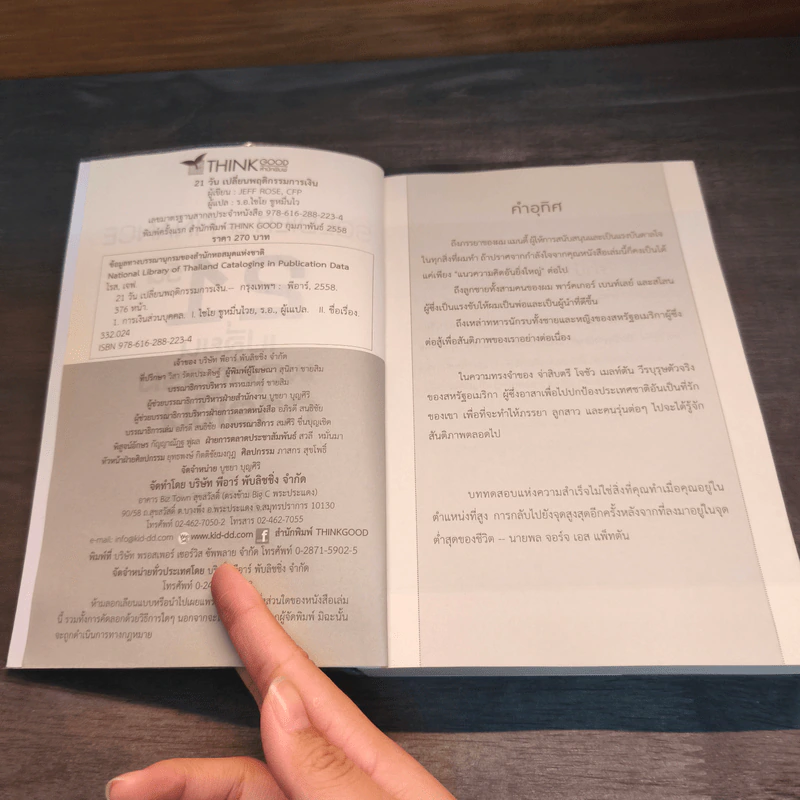 THINK GOOD
21 วัน เปลี่ยนพฤติกรรมการเงิน
ผู้เขียน : JEFF ROSE, CFP
ผู้แปล : ร.อ.ไชโย ชูหมื่นไร
เลขมาตรฐานสากลประจำหนังสือ 978-616-288-223-4
พิมพ์ครั้งแรก สำนักพิมพ์ THINK GOOD กุมภาพันธ์ 2558
ราคา 270 บาท
ข้อมูลทางบรรณานุกรมของสำนักหอสมุดแห่งชาติ
National Library of Thailand Cataloging in Publication Data
โรส, เจฟ.
21 วัน เปลี่ยนพฤติกรรมการเงิน.-- กรุงเทพฯ : พีอาร์, 2558.
376 หน้า.
1. การเงินส่วนบุคคล. I. ไชโย ชูหมื่นไวย, ร.อ., ผู้แปล. II. ชื่อเรื่อง.
332.024
ISBN 978-616-288-223-4
เจ้าของ บริษัท พีอาร์ พับลิชชิ่ง จำกัด
ที่ปรึกษา วิสา รัตตประดิษฐ์ ผู้พิมพ์ผู้โฆษณา สุนิสา ชายสิม
บรรณาธิการบริหาร พรหมมาตร์ ชายสิม
ผู้ช่วยบรรณาธิการบริหารฝ่ายสำนักงาน บุชยา บุญศิริ
ผู้ช่วยบรรณาธิการบริหารฝ่ายการตลาดหนังสือ อภิรดี สนธิชัย
บรรณาธิการเล่ม อภิรดี สนธิชัย กองบรรณาธิการ สมศิริ ชื่นบุญเชิด
พิสูจน์อักษร กัญญาณัฏฐ ฟูผล ฝ่ายการตลาดประชาสัมพันธ์ สวลี หมันมา
หัวหน้าฝ่ายศิลปกรรม ยุทธพงษ์ กิตติชัยมงกุฎ ศิลปกรรม ภาสกร สุขโพธิ์
จัดจำหน่าย บุชยา บุญศิริ
จัดทำโดย บริษัท พีอาร์ พับลิชชิ่ง จำกัด
อาคาร Biz Town สุขสวัสดิ์ (ตรงข้าม Big C พระประแดง)
90/58 ถ.สุขสวัสดิ์ ต.บางพึ่ง อ.พระประแดง จ.สมุทรปราการ 10130
โทรศัพท์ 02-462-7050-2 โทรสาร 02-462-7055
e-mail: info@kid-dd.com www.kid-dd.com สำนักพิมพ์ THINKGOOD
พิมพ์ที่ บริษัท ทรอสเพอร์ เซอร์วิส ซัพพลาย จำกัด โทรศัพท์ 0-2871-5902-5
จัดจำหน่ายทั่วประเทศโดย บริษัท พีอาร์ พับลิชชิ่ง จำกัด
โทรศัพท์ 0-24
ห้ามลอกเลียนแบบหรือนำไปเผยแพร่ ส่วนใดของหนังสือเล่ม
นี้ รวมทั้งการคัดลอกด้วยวิธีการใดๆ นอกจากจะ ผู้จัดพิมพ์ มิฉะนั้น
จะถูกดำเนินการทางกฎหมาย
คำอุทิศ
ถึงภรรยาของผม แมนดี้ ผู้ให้การสนับสนุนและเป็นแรงบันดาลใจ
ในทุกสิ่งที่ผมทำ ถ้าปราศจากกำลังใจจากคุณหนังสือเล่มนี้ก็คงเป็นได้
แค่เพียง "แนวความคิดอันยิ่งใหญ่" ต่อไป
ถึงลูกชายทั้งสามคนของผม พาร์คเกอร์ เบนท์เลย์ และสโลน
ผู้ซึ่งเป็นแรงขับให้ผมเป็นพ่อและเป็นผู้นำที่ดีขึ้น
ถึงเหล่าทหารนักรบทั้งชายและหญิงของสหรัฐอเมริกาผู้ซึ่ง
ต่อสู้เพื่อสันติภาพของเราอย่างต่อเนื่อง
ในความทรงจำของ จ่าสิบตรี โจชัว เมลท์ตัน วีรบุรุษตัวจริง
ของสหรัฐอเมริกา ผู้ซึ่งอาสาเพื่อไปปกป้องประเทศชาติอันเป็นที่รัก
ของเขา เพื่อที่จะทำให้ภรรยา ลูกสาว และคนรุ่นต่อๆ ไปจะได้รู้จัก
สันติภาพตลอดไป
บททดสอบแห่งความสำเร็จไม่ใช่สิ่งที่คุณทำเมื่อคุณอยู่ใน
ตำแหน่งที่สูง การกลับไปยังจุดสูงสุดอีกครั้งหลังจากที่ลงมาอยู่ในจุด
ต่ำสุดของชีวิต -- นายพล จอร์จ เอส แพ็ทตัน